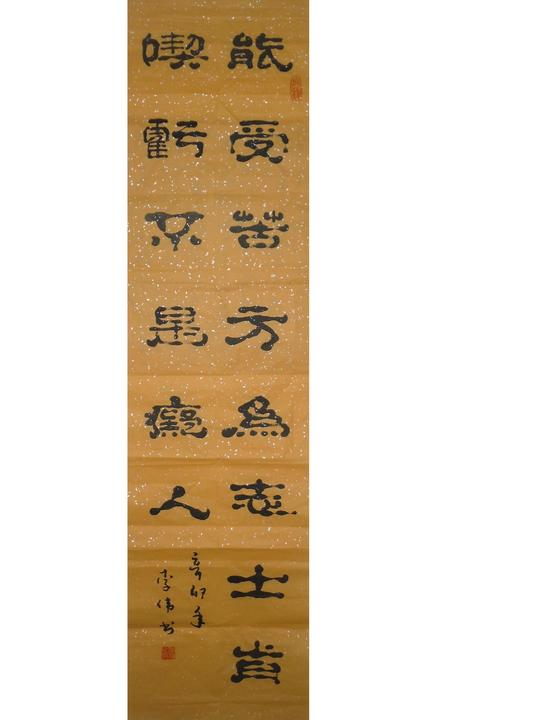 能受苦方為志士肯
喫虧不是癡人
辛卯年
李偉書